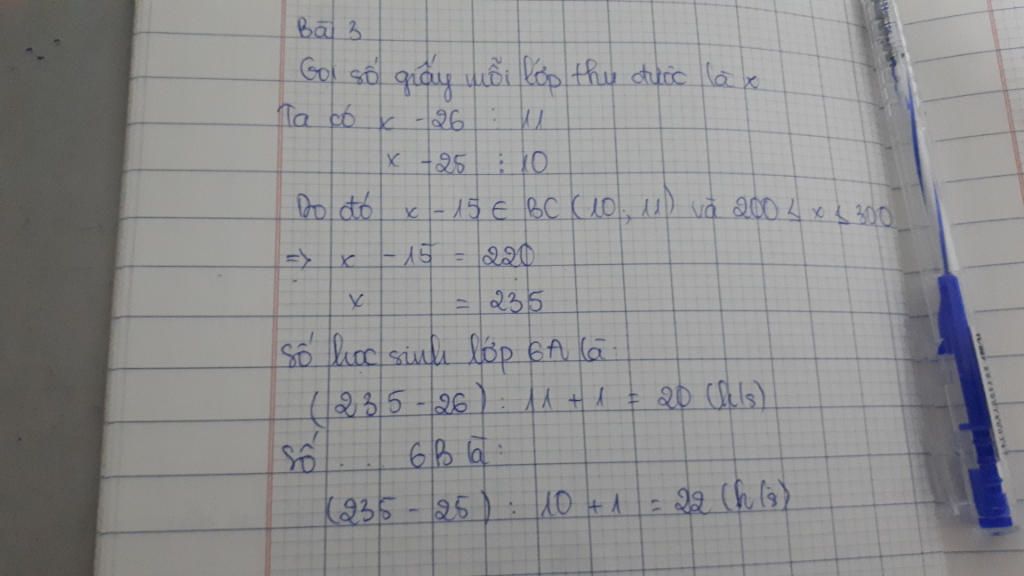 Bài 3
Gọi số giấy mỗi lớp thu được là x
Ta có x - 26 ⋮ 11
x - 25 ⋮ 10
Do đó x - 15 ∈ BC (10, 11) và 200 ≤ x ≤ 300
=> x - 15 = 220
x = 235
Số học sinh lớp 6A là:
(235 - 26) : 11 + 1 = 20 (h/s)
Số ... 6B là:
(235 - 25) : 10 + 1 = 22 (h/s)